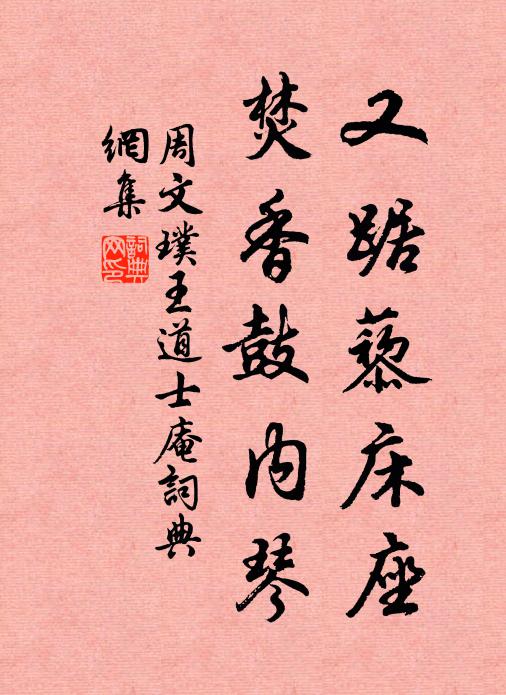 又踞藜床座
焚香鼓内琴
周文璞王道士庵詞典
網集
詞典
网印